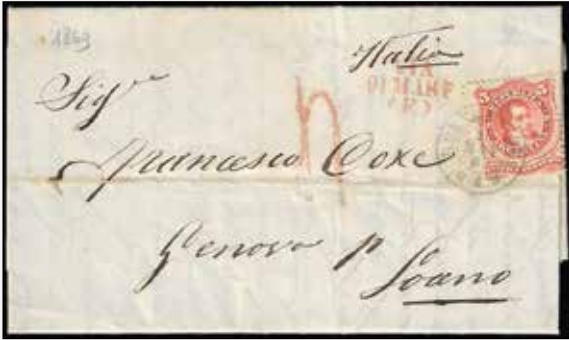 1869
Italia
VIA
DI MARE
Sig.re
Francesco Coxe
5
Genova p
Loano